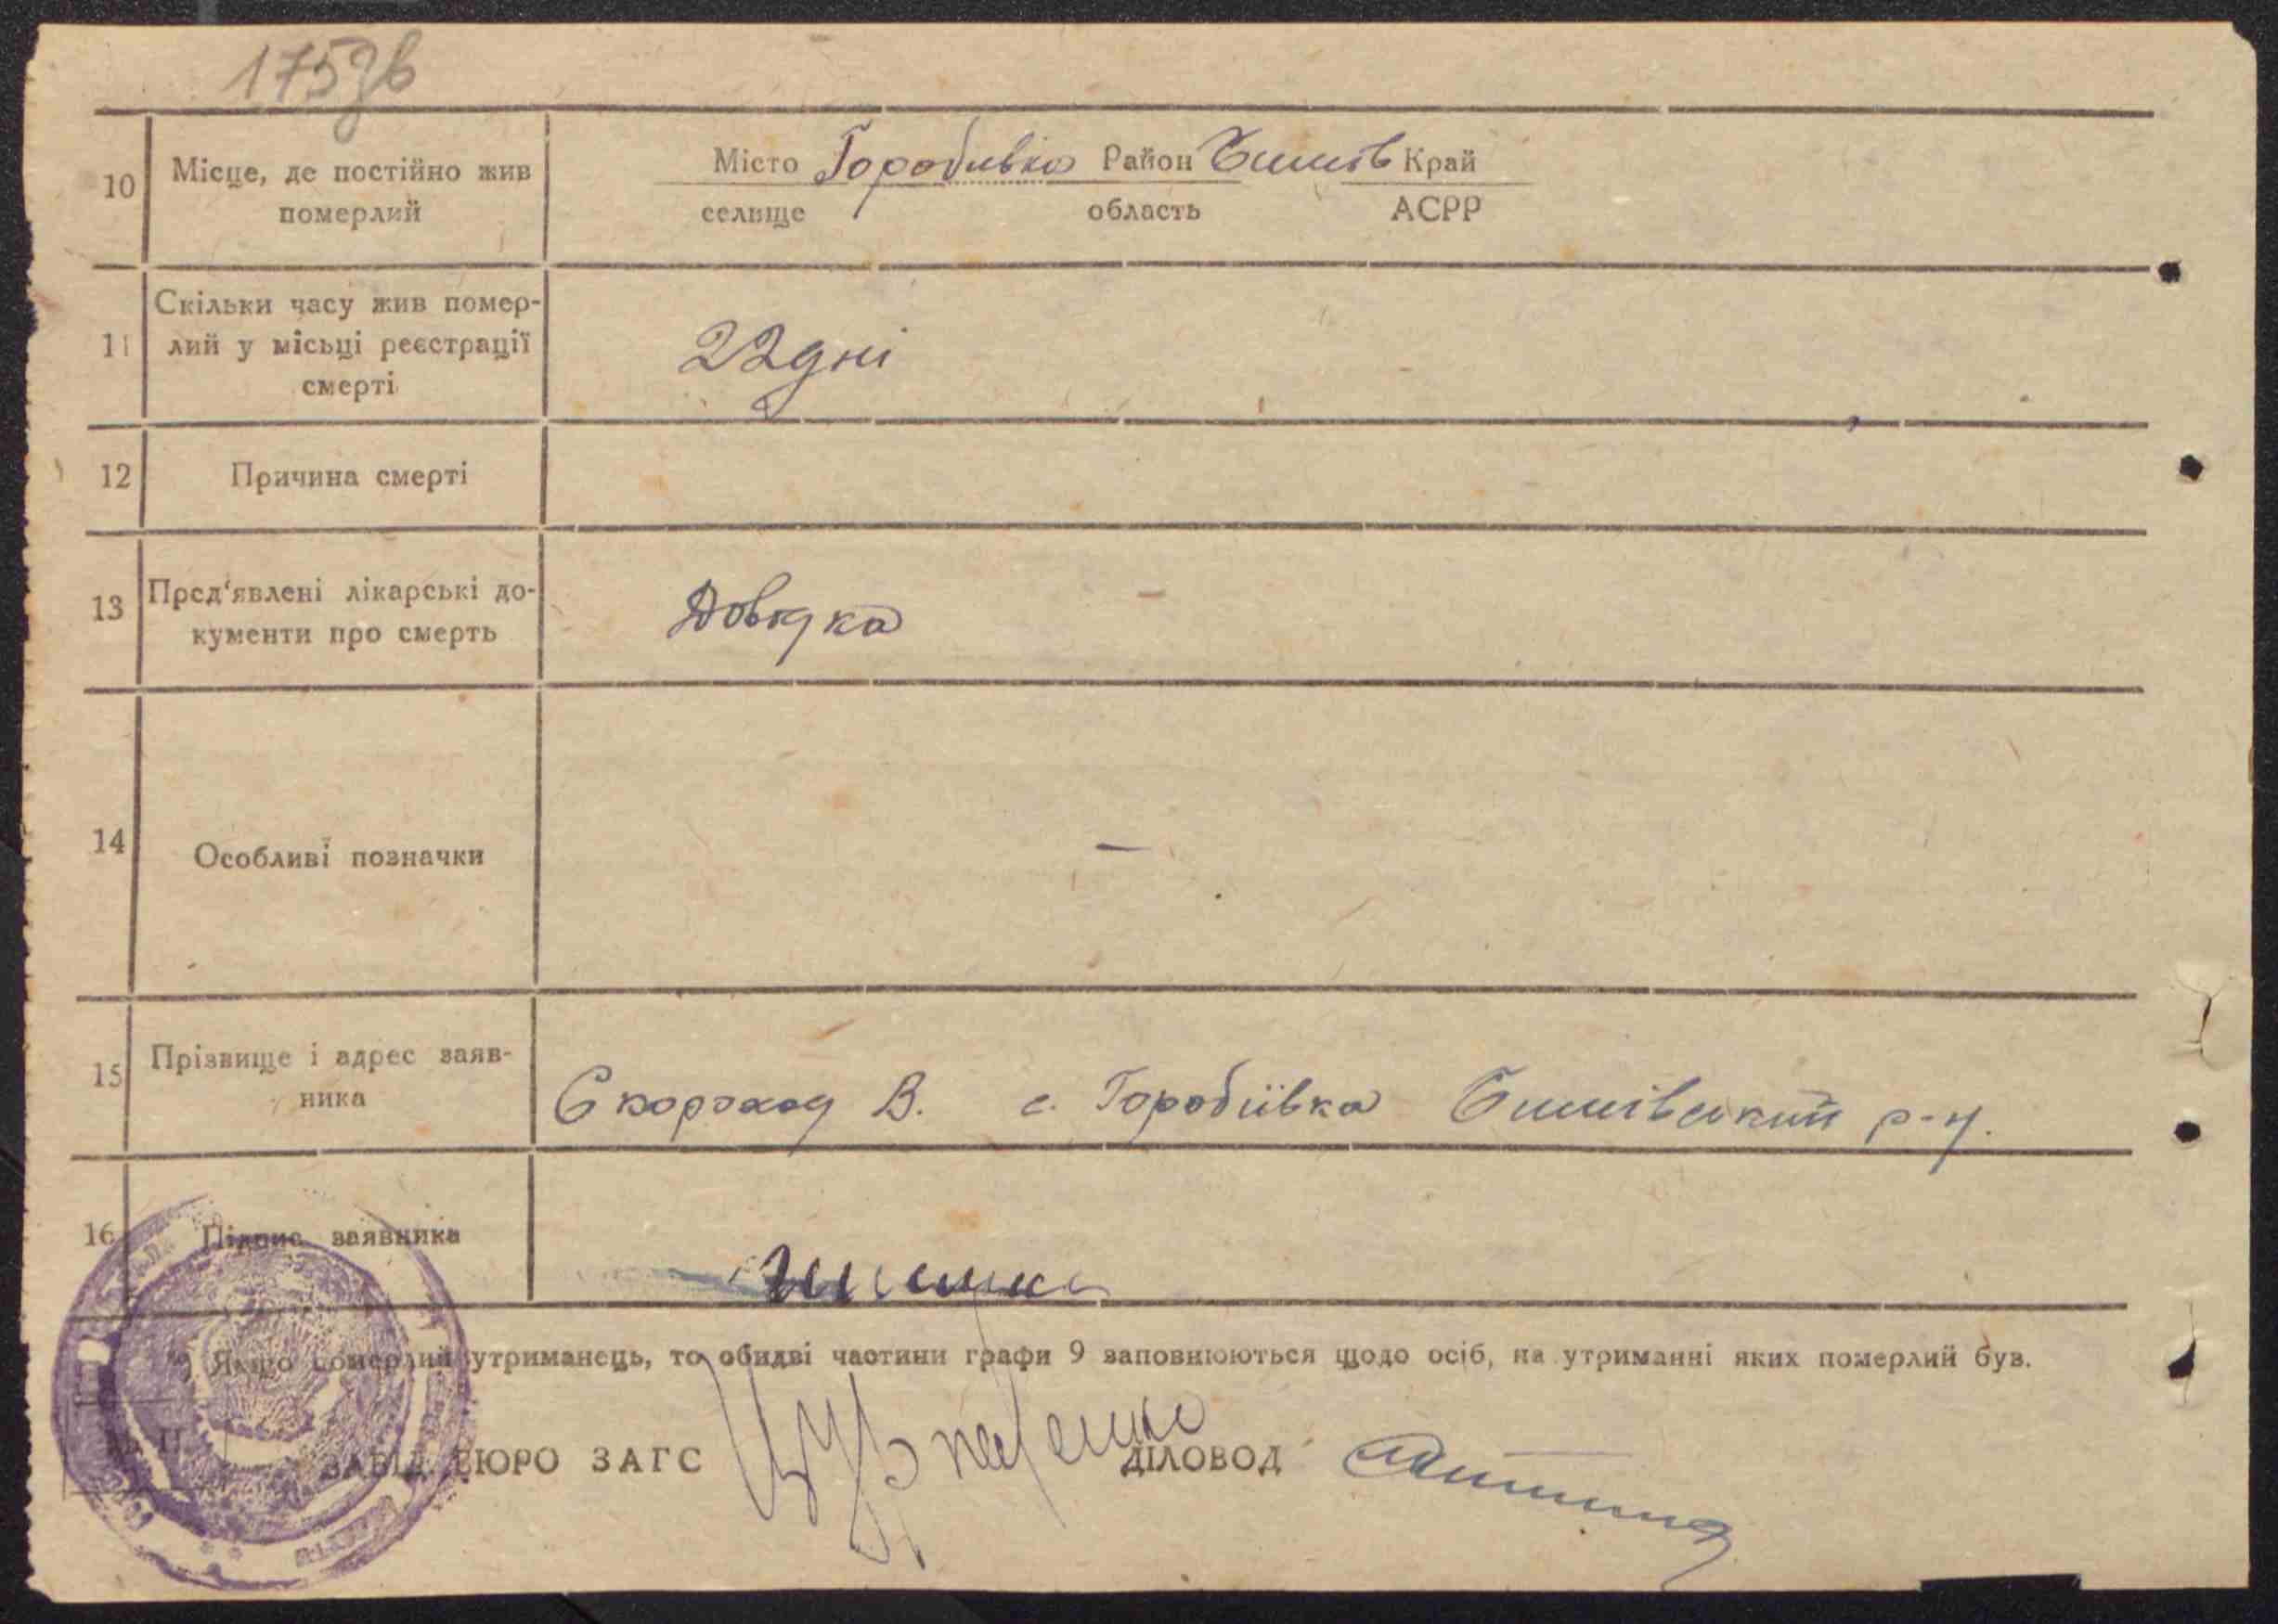 175зв
10 Місце, де постійно жив Місто Горобивка Район Бишів Край
померлий селище область АСРР
Скільки часу жив помер-
11 лий у місьці реєстрації 22 дні
смерті
12 Причина смерті
13 Пред'явлені лікарські до- Довідка
кументи про смерть
14 Особливі позначки —
15 Прізвище і адрес заяв-
ника Скороход В. с. Горобіївка Бишівський р-н.
16 Підпис заявника
*) Якщо померлий утриманець, то обидві частини графи 9 заповнюються щодо осіб, на утриманні яких померлий був.
ЗАВІД. БЮРО ЗАГС ДІЛОВОД